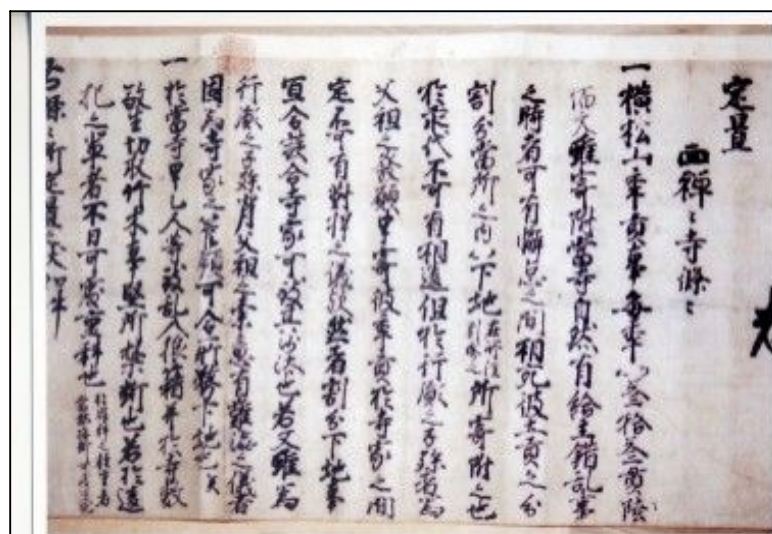 定置
西禅々寺條々
一横松山年貢事毎年以参拾参貫陸
佰文雖寄附當寺自然有給主錯乱事
之時者可有懈怠之間相宛彼土貢之分
割分當所之内以下地所寄附之也
於永代不可有相違但於行蔵之子孫者為
父祖之發願申寄彼年貢於寺家之間
定不可有對捍之儀歟然者割分下地事
宜令談合寺家可致其沙汰也若又雖為
行蔵之子孫背父祖之素意有難澁之儀者
固為寺家之管領可令所務下地也矣
一於當寺甲乙人等致乱入狼藉并於寺敷
殺生切取竹木事堅所禁制也若於違
犯之輩者不日可處重科也
右條々所定置之状如件